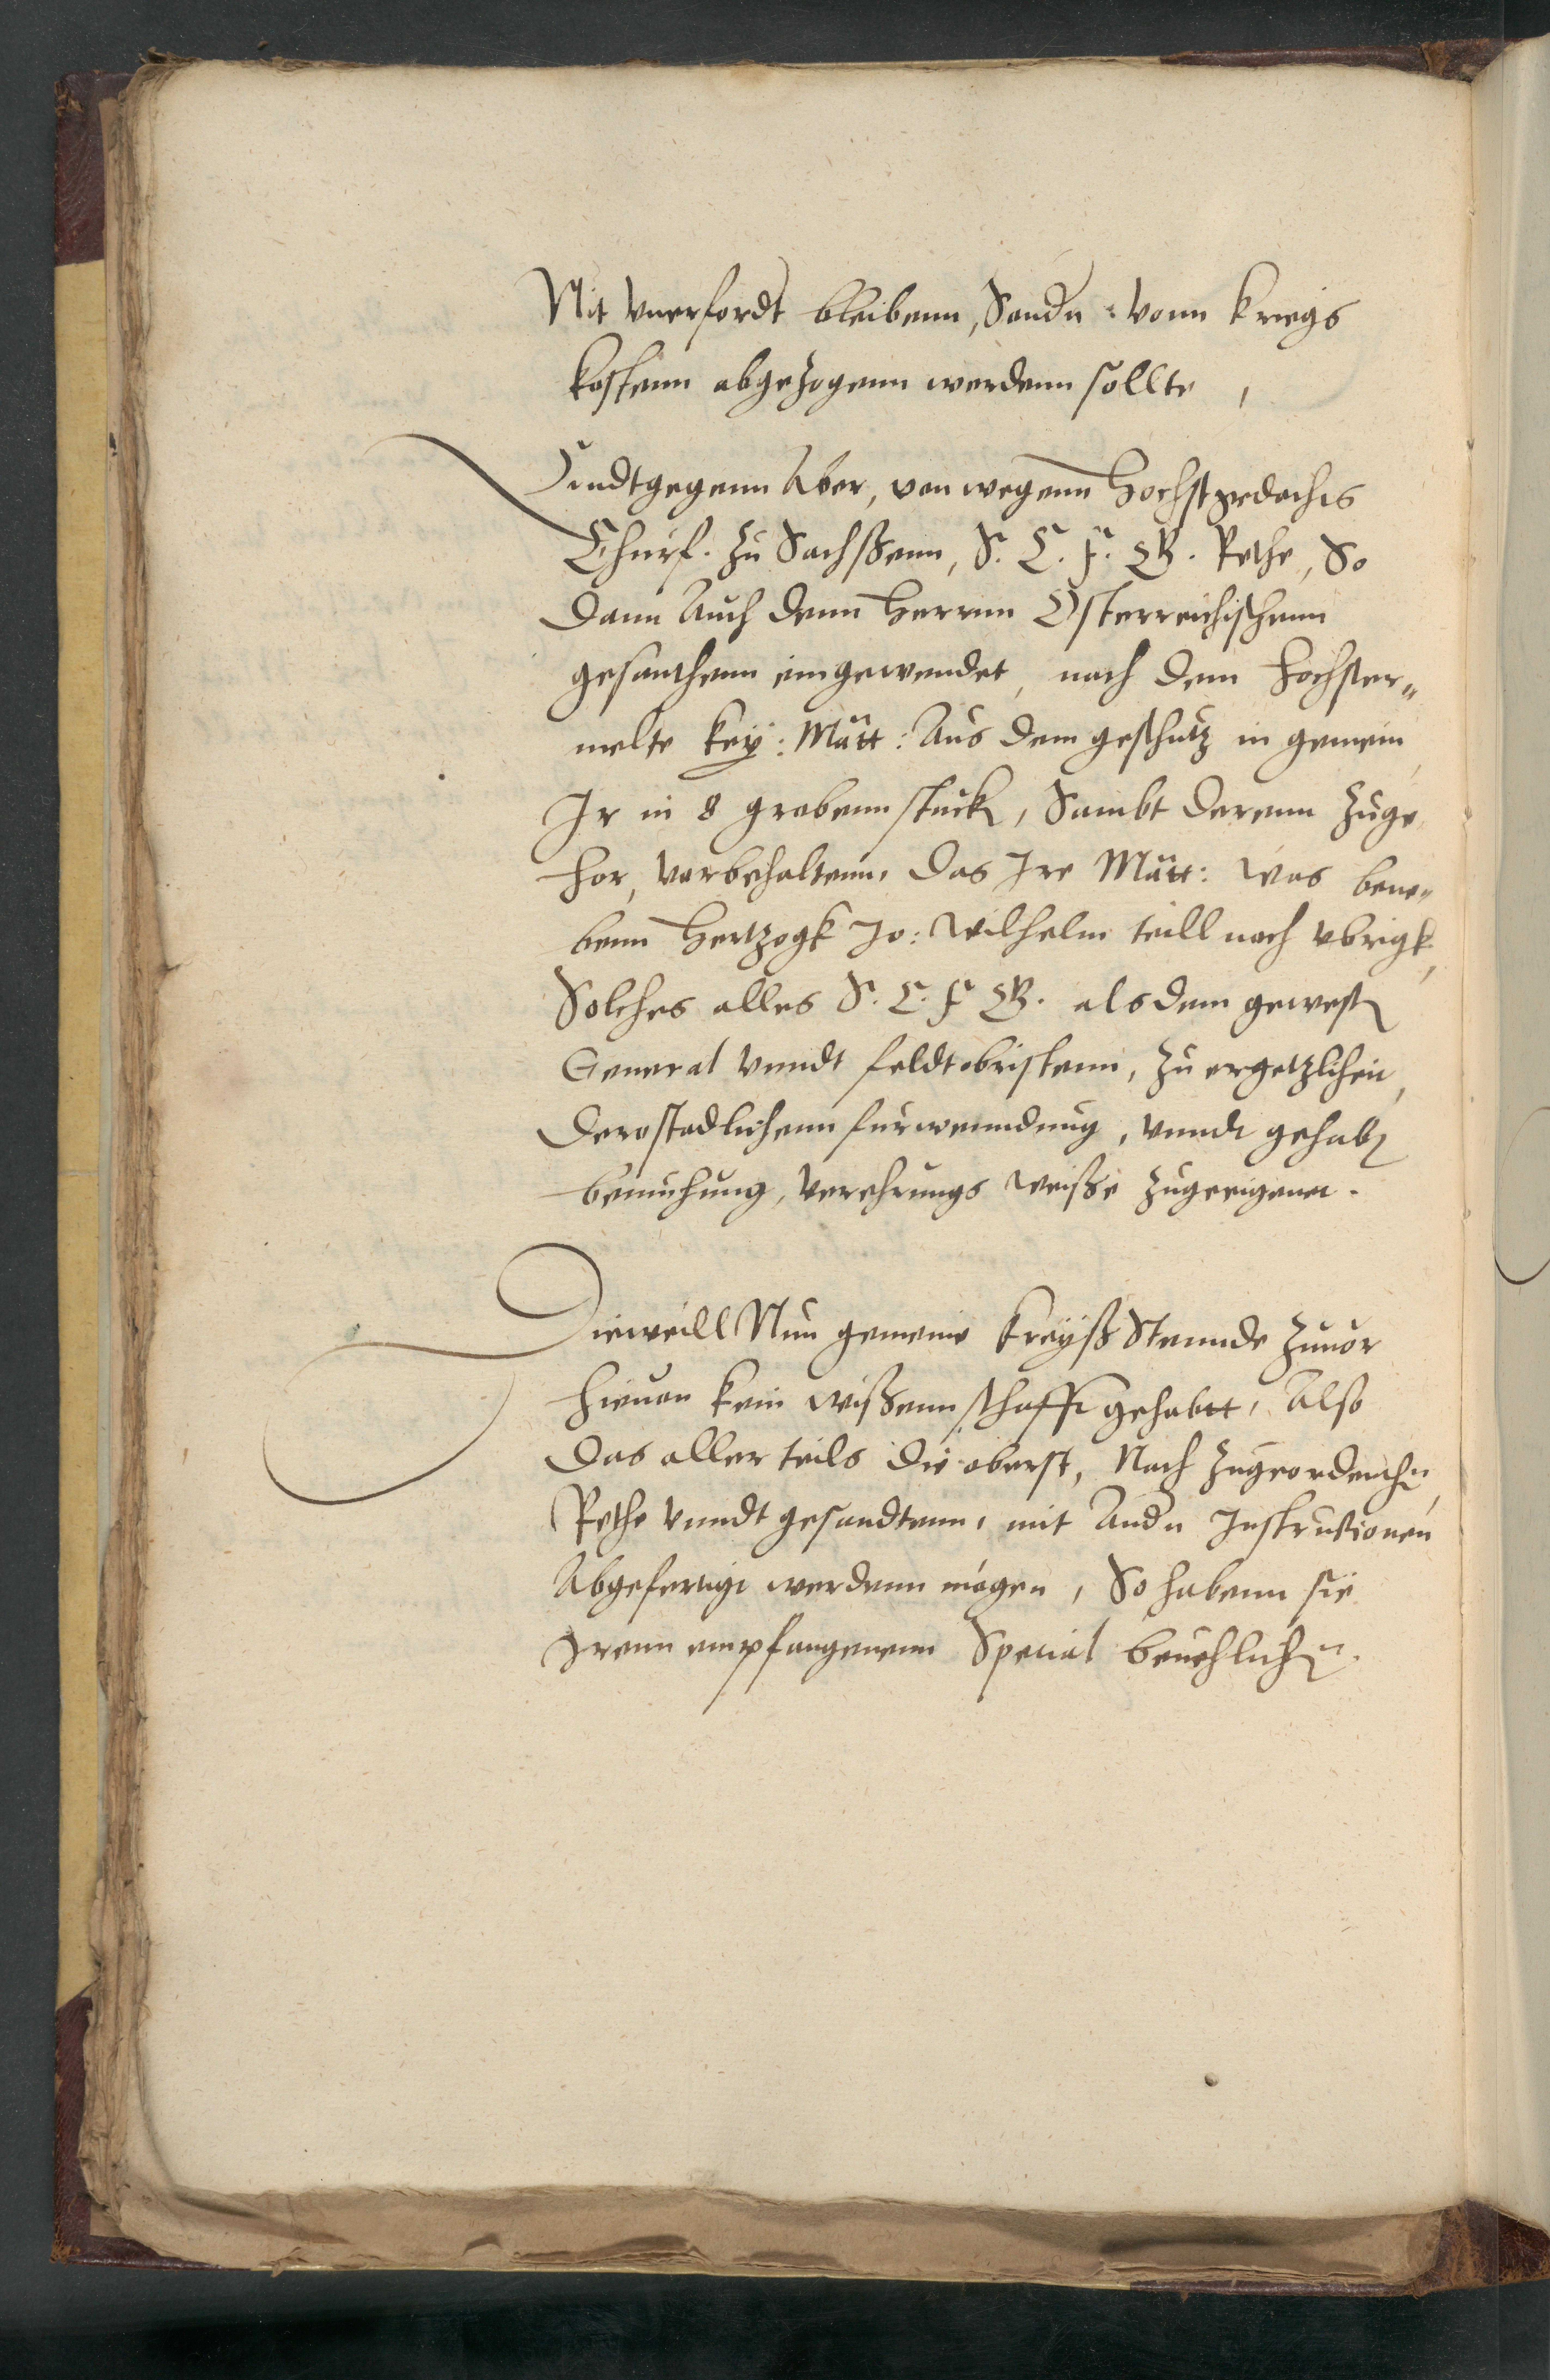 Nit vnerfordt bleibenn, Sondn vonn kriegs
kostenn abgezogenn werdenn sollte,
Hindtgegenn Aber, von wegenn Hochstgedachts
Churf. zu Sachßenn, S. C. F. G. Rethe, So
dann Auch denn Herrnn Osterreichischenn
gesanthenn eingewendet, nach dem hochster„
melte key: Mätt: Aus dem geschutz in gemein,
Ir in 8 grobenn stuck, Sambt derenn zuge
hor, vorbehaltenn, das Ire Mätt: was bene„
benn Hertzogk Jo: Wilhelm teill noch vbrigk,
Solches alles S. C. F. G. als dem gewesten
General vnndt feldtobristenn, zu ergetzlicheit,
der stadlichenn furwenndung, vnndt gehabten
bemuhung, verehrungs weiße zugeeigenet.
Dieweill Nun gemeine kreyß Stennde zuuor
hieuon kein wißennschafft gehabtt, Also
das aller teils die oberst, Nach zugeordenthen,
Rethe vnndt gesandtenn, mit Andn Instruction
Abgefertigt werdenn mögen, So habenn sie
Irenn empfangenenn Special beuehlichen.